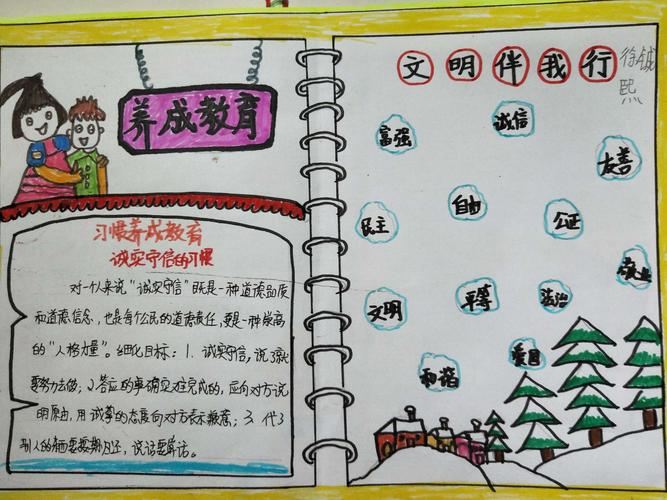 养成教育
习惯养成教育
诚实守信的习惯
对一个人来说"诚实守信"既是一种道德品质
和道德信念，也是每个公民的道德责任，更是一种崇高
的"人格力量"。细化目标：1.诚实守信，说了就
要努力去做；2.答应的事确实难完成的，应向对方说
明原由，用诚挚的态度向对方表示歉意；3.代了
别人的 要 归还，说话要算话。
文明伴我行
徐铖熙
富强
诚信
友善
民主
自由
公证
敬业
文明
平等
法治
和谐
爱国